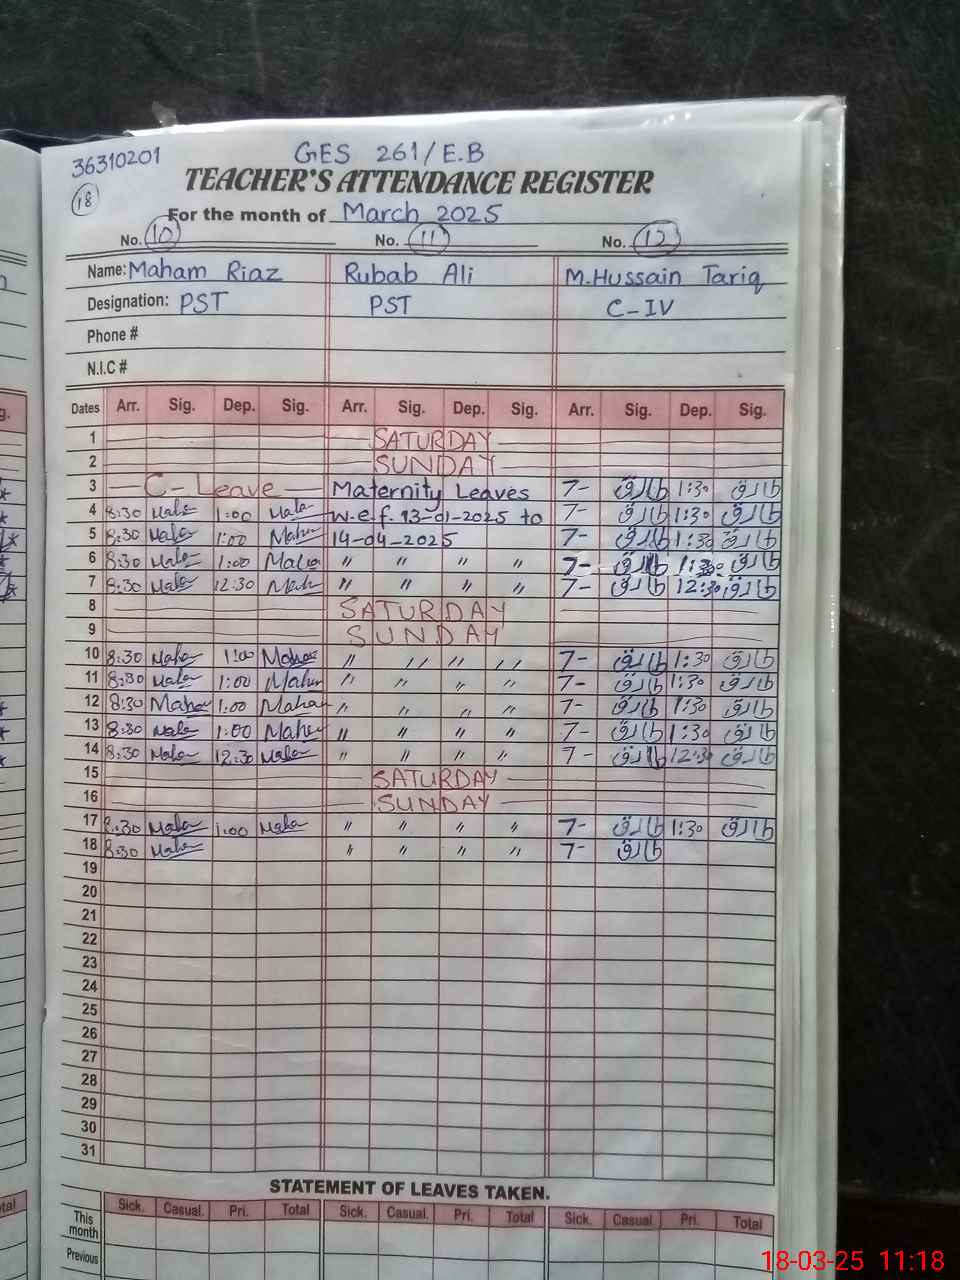 36310201 GES 261/E.B
18 TEACHER'S ATTENDANCE REGISTER
For the month of March 2025
No. 10 No. 11 No. 12
Name: Maham Riaz Rubab Ali M.Hussain Tariq
Designation: PST PST C-IV
Phone #
N.I.C #
Dates Arr. Sig. Dep. Sig. Arr. Sig. Dep. Sig. Arr. Sig. Dep. Sig.
1 SATURDAY
2 SUNDAY
3 C-Leave Maternity Leaves 7- طارق 1:30 طارق
4 8:30 1:00 w.e.f. 13-01-2025 to 7- طارق 1:30 طارق
5 8:30 1:00 14-04-2025 7- طارق 1:30 طارق
6 8:30 1:00 " " " " 7- طارق 1:30 طارق
7 8:30 12:30 " " " " 7- طارق 12:30 طارق
8 SATURDAY
9 SUNDAY
10 8:30 1:00 " " " " 7- طارق 1:30 طارق
11 8:30 1:00 " " " " 7- طارق 1:30 طارق
12 8:30 Maham 1:00 Maham " " " " 7- طارق 1:30 طارق
13 8:30 1:00 " " " " 7- طارق 1:30 طارق
14 8:30 12:30 " " " " 7- طارق 12:30 طارق
15 SATURDAY
16 SUNDAY
17 8:30 1:00 " " " " 7- طارق 1:30 طارق
18 8:30 " " " " 7- طارق
19
20
21
22
23
24
25
26
27
28
29
30
31
STATEMENT OF LEAVES TAKEN.
Sick. Casual. Pri. Total Sick. Casual. Pri. Total Sick. Casual. Pri. Total
This month
Previous
18-03-25 11:18